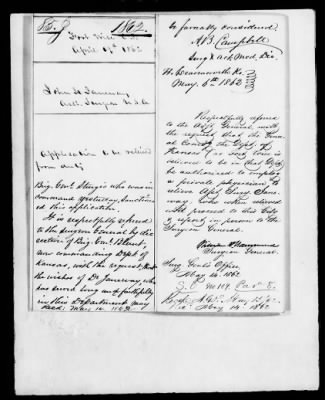 1862.
April 19th 1862
John H. Janeway
Asst. Surgeon U.S.A.
Application to be relieved
from duty
Brig. Genl. Sturgis who was in
command yesterday, sanctioned
this application.
It is respectfully referred
to the Surgeon General by di-
rection of Brig. Genl. Blunt,
now commanding Dept. of
Kansas, with the request, that
the wishes of Dr. Janeway, who
has served long and faithfully
in this Department may
be favorably considered.
Surg & act Med. Dir.
Ft. Leavenworth Ks.
May 6th 1862
Respectfully referred
to the Adjt. General with
the request that the Genl
Comdg the Dept. of
Kansas
be authorized to employ
a private physician to
relieve Asst. Surg. Jane-
way, who when relieved
will proceed to this City
& report in person to the
Surgeon General.
Surgeon General.
Surg. Genl's Office,
May 14. 1862
May 14 1862